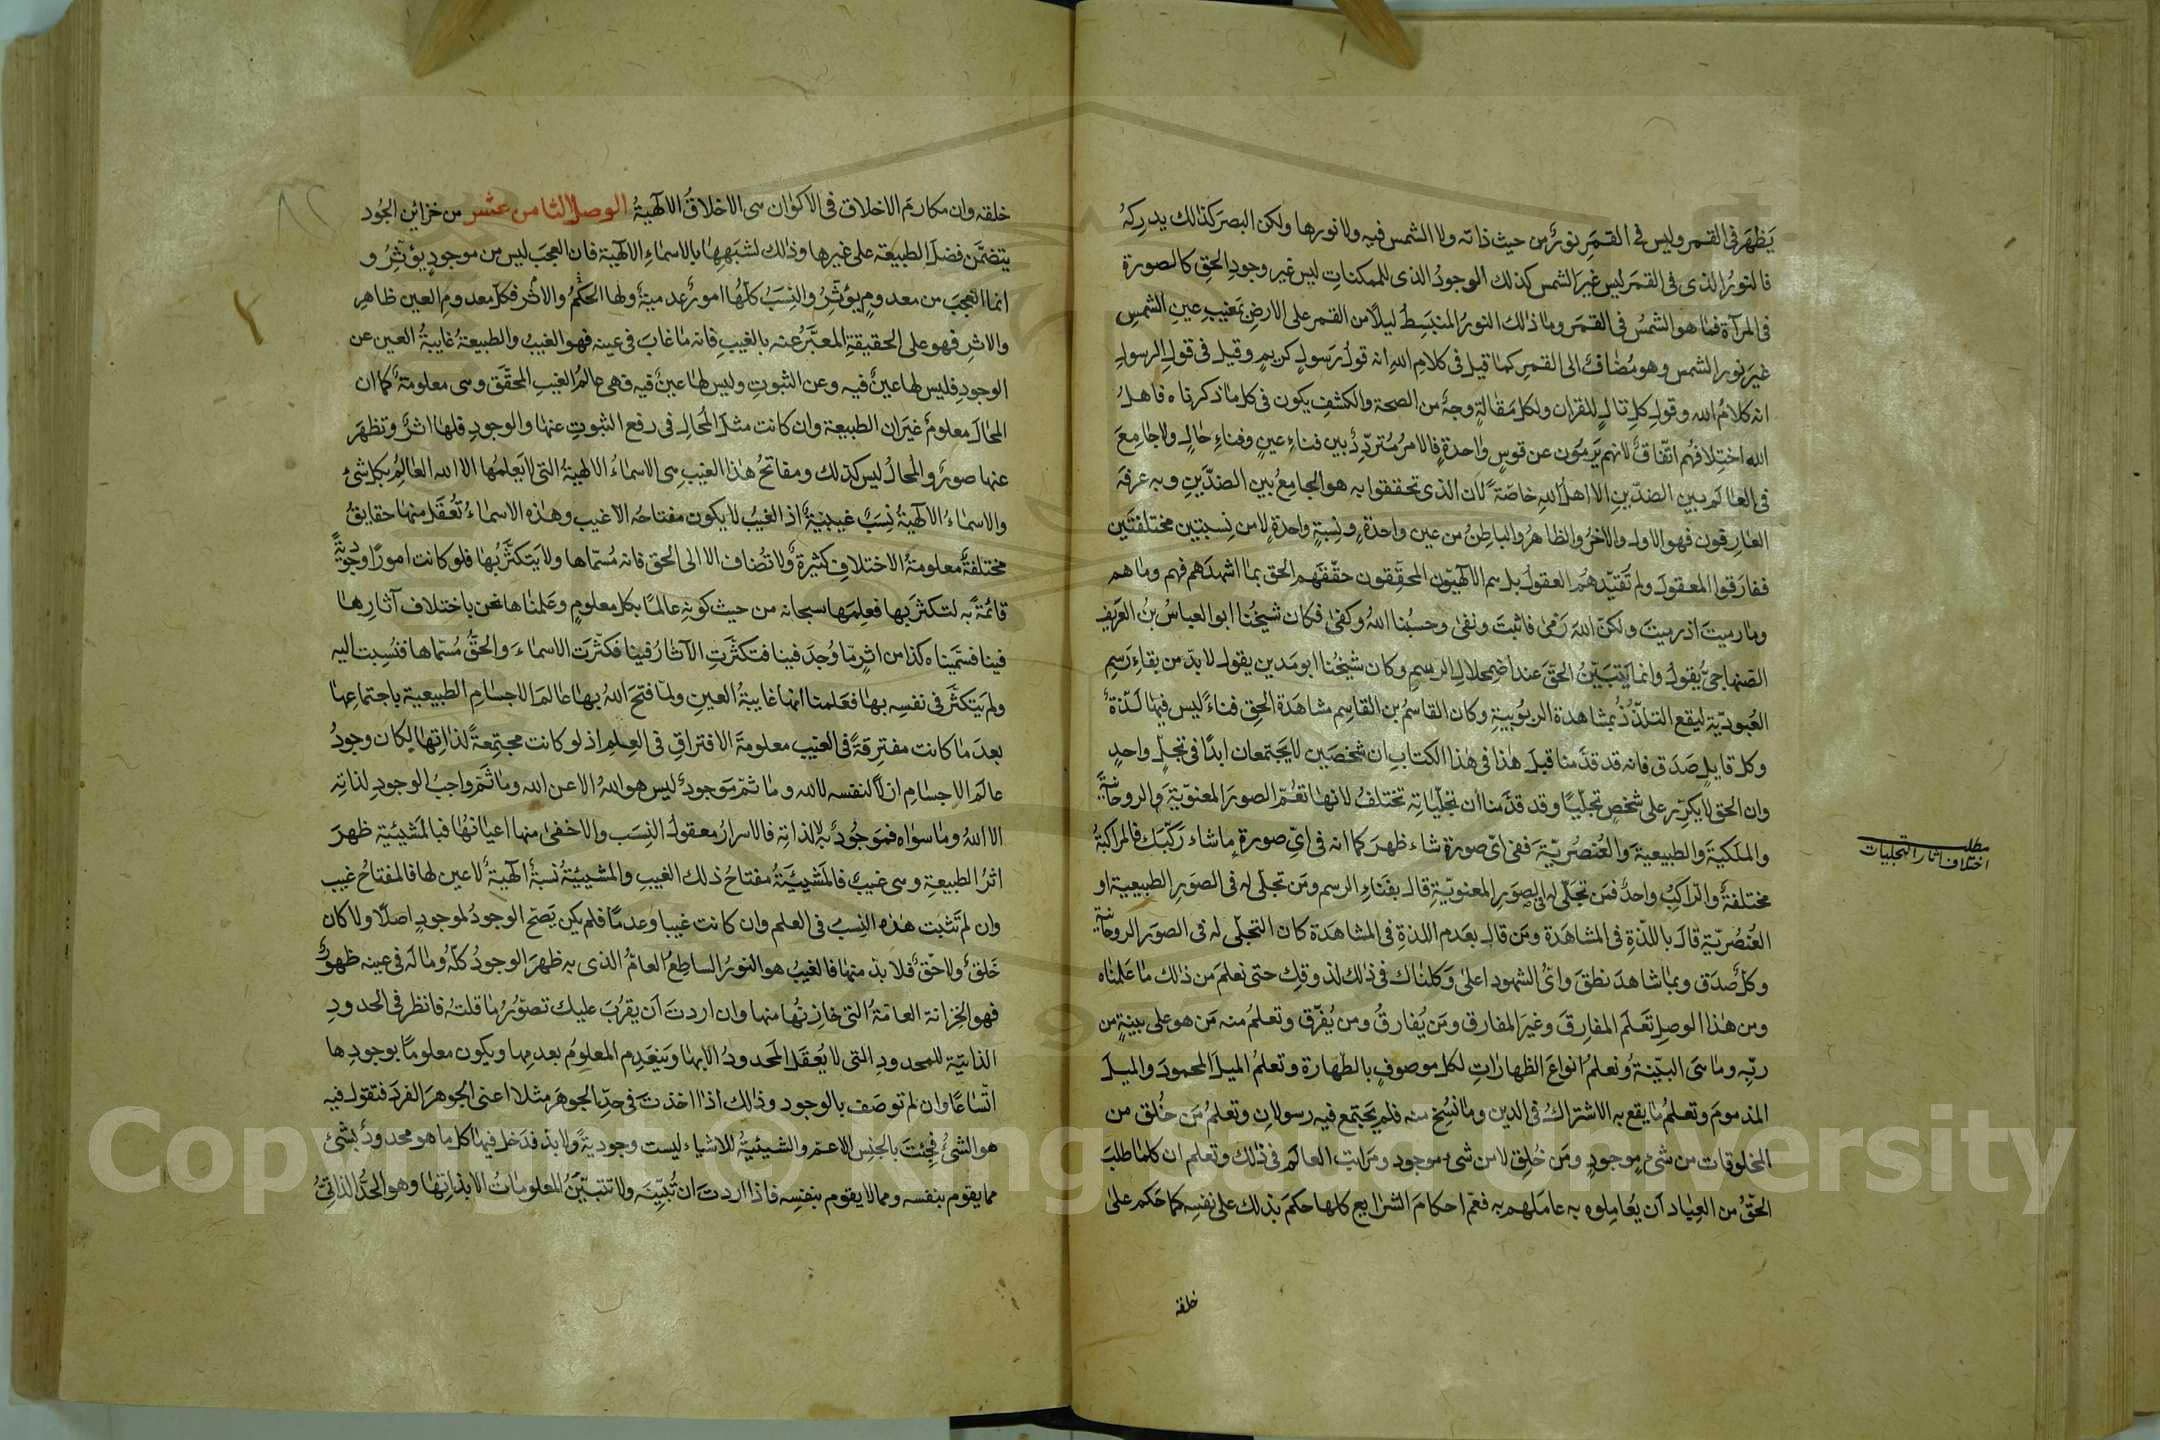 يَظهَر في القمر وليس في القمَرِ نورٌ من حيث ذاته ولا الشمس فيه ولا نورها ولكن البصَر كذلك يدرِكهُ
فالنورُ الذى فى القمَر ليس غيرَ الشمس كذلك الوجودُ الذى للممكناتِ ليس غير وجودِ الحقِ كالصورة
فى المرآة فما هو الشمسُ فى القمَر وما ذالك النورُ المنبَسِطُ ليلًا من القمر على الارضِ بمَغيبِ عينِ الشمسِ
غيرَ نور الشمس وهو مُضافٌ الى القمرِ كما قيل فى كلامِ اللهِ انه قولُ رَسولٍ كريمٍ وقيل فى قولِ الرسولِ
انه كلامُ الله وقولِ كلِ تالٍ للقران ولكل مَقالةٍ وجهٌ من الصحة والكشفِ يكون فى كل ما ذكرناه فاهلُ
الله اختِلافهُم اتّفاقٌ لانهم يَرمُون عن قوسٍ واحدةٍ فالامر مُتردِّدٌ بين فناءِ عينٍ وفناءِ حالٍ ولا جامِعَ
فى العالَم بين الضدّين الا اهلُ اللهِ خاصّةً لان الذى تحققوا به هو الجامِعُ بين الضدّينِ وبه عرفَ
العارِفون فهو الاول والاخرُ والظاهرُ والباطِنُ من عين واحدةٍ ونسبةٍ واحدةٍ لا من نِسبتين مختلفتَين
ففارَقوا المعقولَ ولم تُقيّدهمُ العقولُ بل هم الالهيّون المحقِّقون حقّقَهم الحق بما اشهدَهم فهم وما هم
وما رميتَ اذ رميتَ ولكنّ اللهَ رَمىٰ فاثبتَ ونفى وحسبُنا اللهُ وكفىٰ فكان شيخُنا ابو العباسُ بنُ العَرِيفِ
الصّنهاجىّ يُقول وانما يَتبَيّنُ الحقّ عند اضمحلالِ الرسمِ وكان شيخُنا ابو مَدين يقول لا بدّ من بقاءِ رَسمِ
العُبوديّةِ ليقع التلذّذُ بمشاهدة الربُوبيةِ وكان القاسمُ بن القاسِم مشاهَدة الحقِ فناءً ليس فيها لَذّةٌ
وكل قايلٍ صَدَق فانه قد قدّمنا قبلَ هٰذا فى هٰذا الكتابِ ان شخصَين لا يَجتمعان ابدًا فى تجلٍّ واحدٍ
وان الحق لا يكرّر على شخصٍ تجلّيًا وقد قدّمنا ان تجلّياتِه تختلفُ لانها تعُمّ الصورَ المعنويّةَ والروحانيّةَ
والملَكيةَ والطبيعيةَ والعُنصُريّةَ ففى اىّ صورةٍ شاء ظهرَ كما انه فى اىّ صورةٍ ما شاء رَكّبَك فالمراكبُ
مختلفةٌ والرّاكبُ واحدٌ فمَن تجَلّى له فى الصوَرِ المعنويّةِ قال بفَناءِ الرسم ومَن تجلّى له فى الصوَرِ الطبيعيةِ او
العُنصُريّةِ قالَ باللذّةِ فى المشاهَدة ومَن قال بعَدم اللذة فى المشاهَدة كان التجلّى له فى الصوَر الروحانيّةِ
وكلٌ صَدَق وبما شاهدَ نطقَ واىُّ الشهودِ اعلىٰ وَكلناك فى ذلك لذوقِك حتى تعلمَ من ذالك ما عَلمناه
ومن هٰذا الوصلِ تَعلَم المفارِقَ وغيرَ المفارق ومَن يُفارقُ ومن يُفرّق وتعلمُ منه مَن هو على بينةٍ من
ربّه وما هىَ البيّنةُ وتعلمُ انواعَ الطهاراتِ لكل موصوفٍ بالطهَارة وتعلمُ الميلَ المحمودَ والميلَ
المذمومَ وتعلمُ ما يقع به الاشتراكُ فى الدين وما نُسِخ منه فلم يَجتمع فيه رسولانِ وتعلمُ مَن خُلق من
المخلوقات من شىءٍ موجودٍ ومَن خُلِق لا من شىء موجود ومَراتبَ العالَم فى ذٰلك وتعلم ان كلما طلبَ
الحَقُّ من العِباد اَن يُعامِلوه به عامَلهم به فعّم احكامَ الشرايع كلها حكمَ بذلك على نفسِه كما حَكم علىٰ
خلقه
مطلب
اختلاف اثار التجليات
خلقه وان مكارمَ الاخلاق فى الاكوان هى الاخلاقُ الالهيةُ الوصل الثامن عشر من خزائن الجُود
يتضمَّن فضلَ الطبيعة على غيرها وذالك لشبَههِا بالاسماءِ الالهية فان العجَب ليس من موجودٍ يؤثِّرُ و
انما العَجبَ من معدومٍ يؤثّرُ والنِسَبُ كلّها امورٌ عدميةٌ ولها الحَكمُ والاثر فكل معدومِ العين ظاهرِ
والاثرِ فهو على الحقيقةِ المعبَّرُ عنه بالغيبِ فانه مَا غابَ فى عينه فهو الغيبُ والطبيعةُ غايبةُ العين عن
الوجودِ فليس لها عينٌ فيه وعن الثبوتِ وليس لها عينٌ فيه فهى عالمُ الغيبِ المحقَّقِ وهى معلومةٌ كما ان
المحالَ معلومٌ غيرَ ان الطبيعة وان كانت مثلَ المحالِ فى رفع الثبُوتِ عنها والوجودِ فلها اثرٌ وتظهَر
عنها صورٌ والمحالُ ليس كذلك ومفاتحُ هٰذا الغيبِ هى الاسماءُ الالهيةُ التى لا يَعلمُها الا الله العالِمُ بكل شئٍ
والاسماءُ الالهيةُ نِسَبٌ غيبيّةٌ اذ الغيبُ لا يكون مفتاحُه الا غيب وهٰذه الاسماءُ تُعقَل منها حقايقُ
مختلفةٌ معلومةُ الاختلافِ كثيرةٌ ولا تُضاف الا الى الحق فانه مُسمّاها ولا يَتكثَّرُ بها فلو كانت امورًا وجوديّةً
قائمةً به لتكثرَ بها فعلِمَها سبحانه من حيث كونِه عالمًا بكل معلومٍ وعَلمناها نحن باختلاف آثارِها
فينا فسَمّيناه كذا من اثرٍ مّا وُجدَ فينا فتكثّرَتِ الآثارُ فينا فكثّرَت الاسماءَ والحقُّ مُسمّاها فنُسِبت اليه
ولم يَتكثّر فى نفسِه بها فعَلمنا انها غايبةُ العينِ ولما فتحَ اللهُ بها عالمَ الاجسَامِ الطبيعية باجتماعِها
بعدَ ما كانت مفترِقةً فى الغيب معلومةَ الافتراقِ فى العلمِ اذ لو كانت مجتمِعةً لذاتِها لكان وجودُ
عالمَ الاجسامِ ازلًا لنفسه لا لله وما ثم مَوجودٌ ليس هو اللهُ الا عن الله وما ثَمّ واجبُ الوجودِ لذاتِه
الا اللهُ وما سواه فموجُودٌ به لا لذاتِه فالاسرارُ معقولُ النِسَب والاخفى منها اعيانُها فبالمشيئيةِ ظهرَ
اثرُ الطبيعةِ وهى غيبٌ فالمشيئةُ مفتاحُ ذلك الغيبِ والمشيئةُ نسبةٌ الهيةٌ لا عين لها فالمفتاحُ غيب
وان لم تَثبت هٰذه النِسبُ فى العلم وان كانت غيبا وعدمًا فلم يكن يَصح الوجودُ لموجودٍ اصلًا ولا كان
خَلقٌ ولا حقٌ فلا بد منها فالغيبُ هو النورُ الساطعُ العامُّ الذى به ظهرَ الوجودُ كلّه وما لَه فى عينه ظهورٌ
فهو الخِزانة العامّةُ التى خازنُها منها وان اردتَ اَن يقرُبَ عليك تصوّرُ ما قلتُه فانظر فى الحدودِ
الذاتيّة للمحدودِ التى لا يُعقَل المَحدودُ الا بها ويَنعَدِم المعلومُ بعدمِها ويكون معلومًا بوجودِها
اتّساعًا وان لم توصَف بالوجود وذالك اذا اخذتَ فى حدّ الجوهَر مثلا اعنى الجوهرَ الفردَ فتقول فيه
هو الشئُ فجئتَ بالجنسِ الاعمّ والشيئيةُ للاشياء ليست وجوديةً ولا بدّ فدَخل فيها كل ما هو محدودٌ بشئ
مما يقوم بنفسه ومما لا يقوم بنفسِه فاذا اردتَ ان تُبيّنَه ولا تتبيّنُ المعلوماتُ الا بذاتِها وهو الحدُّ الذاتىُّ
Copyright © King Saud University